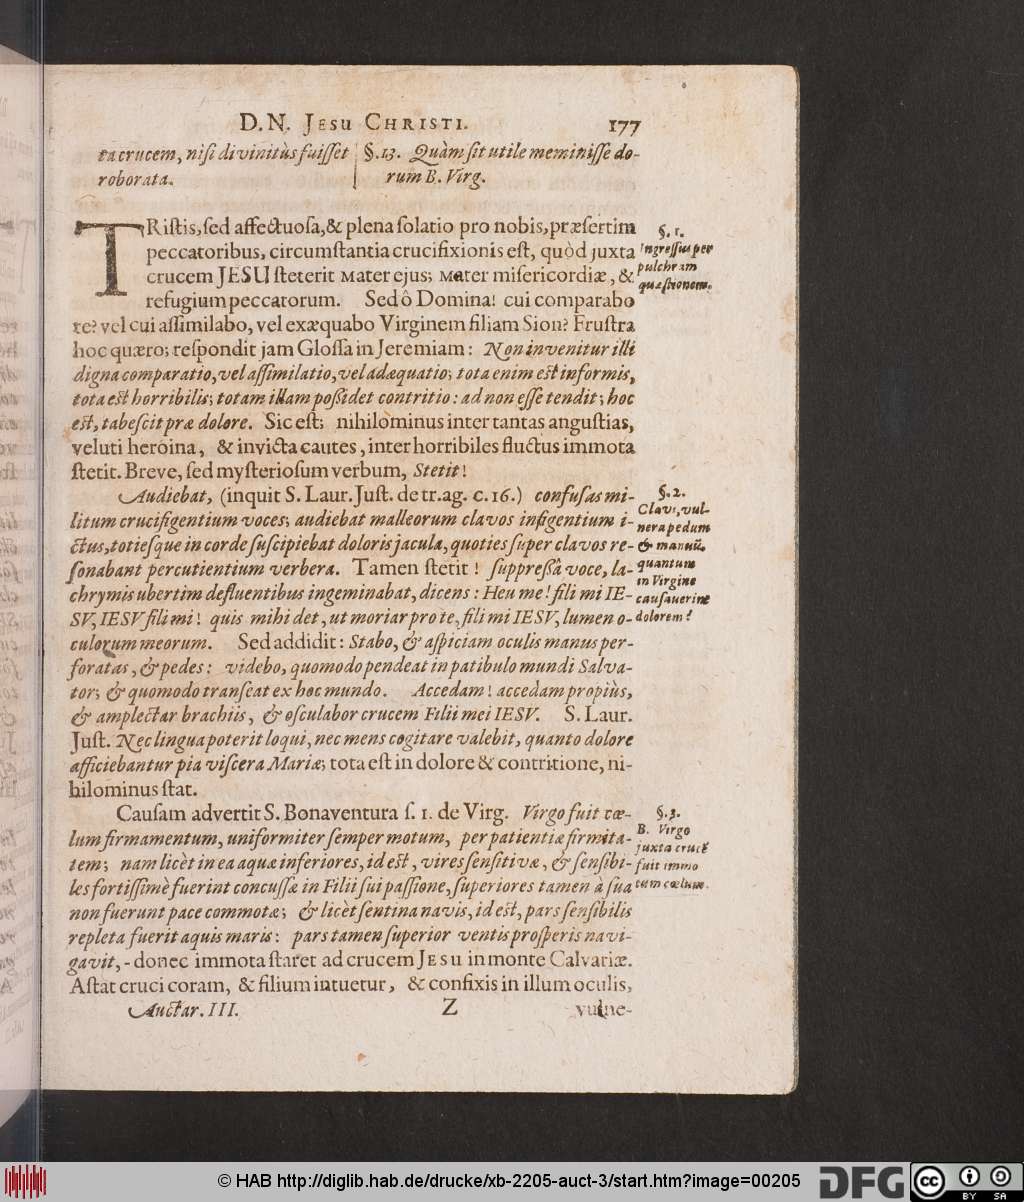 D.N. JESU CHRISTI. 177
ta crucem, nisi divinitùs fuisset
roborata.
§.13. Quàm sit utile meminisse do-
rum B. Virg.
TRistis, sed affectuosa, & plena solatio pro nobis, præsertim
peccatoribus, circumstantia crucifixionis est, quòd juxta
crucem JESU steterit Mater ejus; Mater misericordiæ, &
refugium peccatorum. Sed ô Domina! cui comparabo
te? vel cui assimilabo, vel exæquabo Virginem filiam Sion? Frustra
hoc quæro; respondit jam Glossa in Jeremiam: Non invenitur illi
digna comparatio, vel assimilatio, vel adæquatio; tota enim est informis,
tota est horribilis; totam illam possidet contritio: ad non esse tendit; hoc
est, tabescit præ dolore. Sic est; nihilominus inter tantas angustias,
veluti heroina, & invicta cautes, inter horribiles fluctus immota
stetit. Breve, sed mysteriosum verbum, Stetit!
§. 1.
Ingressus per
pulchram
quæstionem.
Audiebat, (inquit S. Laur. Just. de tr. ag. c. 16.) confusas mi-
litum crucifigentium voces; audiebat malleorum clavos infigentium i-
ctus, totiesque in corde suscipiebat doloris jacula, quoties super clavos re-
sonabant percutientium verbera. Tamen stetit! suppressâ voce, la-
chrymis ubertim defluentibus ingeminabat, dicens: Heu me! fili mi IE-
SV, IESV fili mi! quis mihi det, ut moriar pro te, fili mi IESV, lumen o-
culorum meorum. Sed addidit: Stabo, & aspiciam oculis manus per-
foratas, & pedes: videbo, quomodo pendeat in patibulo mundi Salva-
tor; & quomodo transeat ex hoc mundo. Accedam! accedam propiùs,
& amplectar brachiis, & osculabor crucem Filii mei IESV. S. Laur.
Just. Nec lingua poterit loqui, nec mens cogitare valebit, quanto dolore
afficiebantur pia viscera Mariæ; tota est in dolore & contritione, ni-
hilominus stat.
§. 2.
Clavi, vul-
nera pedum
& manuũ,
quantum
in Virgine
causaverint
dolorem?
Causam advertit S. Bonaventura s. 1. de Virg. Virgo fuit cæ-
lum firmamentum, uniformiter semper motum, per patientiæ firmita-
tem; nam licèt in ea aquæ inferiores, id est, vires sensitivæ, & sensibi-
les fortissimè fuerint concussæ in Filii sui passione, superiores tamen à sua
non fuerunt pace commotæ; & licèt sentina navis, id est, pars sensibilis
repleta fuerit aquis maris: pars tamen superior ventis prosperis navi-
gavit, - donec immota staret ad crucem JESU in monte Calvariæ.
Astat cruci coram, & filium intuetur, & confixis in illum oculis,
§. 3.
B. Virgo
juxta crucẽ
fuit immo
tum cælum.
Auctar. III. Z vulne-
© HAB http://diglib.hab.de/drucke/xb-2205-auct-3/start.htm?image=00205
DFG
cc
BY SA